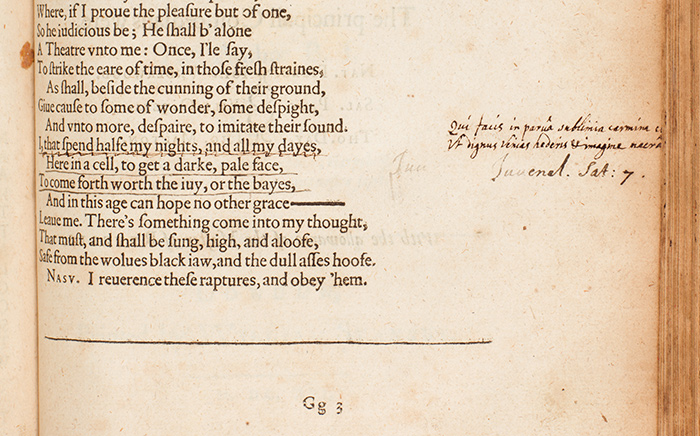 Where, if I proue the pleaſure but of one,
So he iudicious be; He ſhall b' alone
A Theatre vnto me: Once, I'le ſay,
To ſtrike the eare of time, in thoſe freſh ſtraines,
As ſhall, beſide the cunning of their ground,
Giue cauſe to ſome of wonder, ſome deſpight,
And vnto more, deſpaire, to imitate their ſound.
I, that ſpend halfe my nights, and all my dayes,
Here in a cell, to get a darke, pale face,
To come forth worth the iuy, or the bayes,
And in this age can hope no other grace——
Leaue me. There's ſomething come into my thought,
That muſt, and ſhall be ſung, high, and aloofe,
Safe from the wolues black iaw, and the dull aſſes hoofe.
NASV. I reuerence theſe raptures, and obey 'hem.
Qui facis in paruâ sublimia carmina
Vt dignus venias hederis & imagine macrâ
Juvenal. Sat: 7.
Gg 3